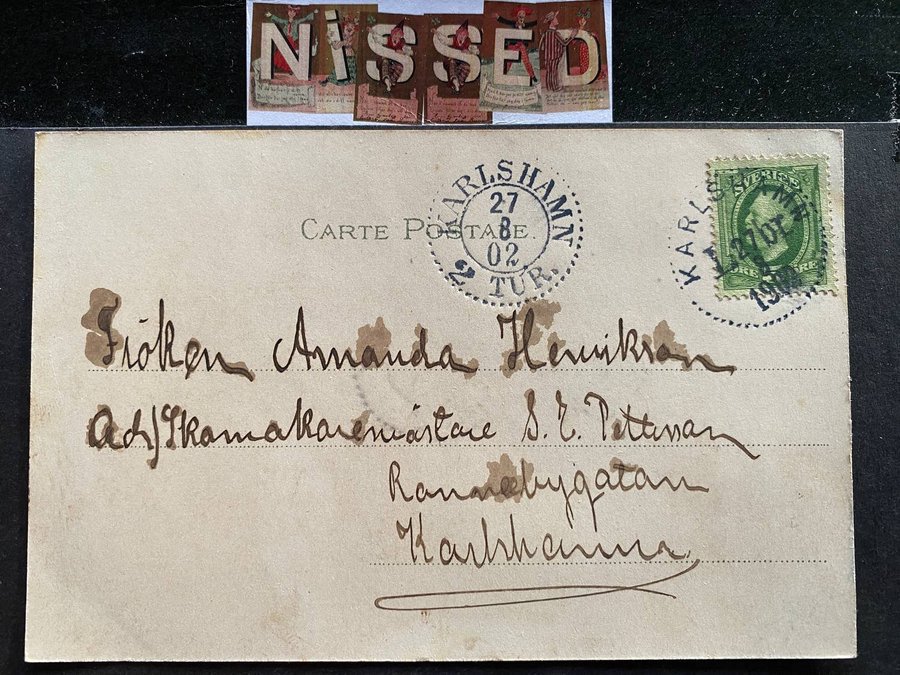 NiSSED
CARTE POSTALE.
KARLSHAMN
27
8
02
2 TUR.
KARLSHAMN
27 OT
8
1902
SVERIGE
Fröken Amanda Henrikson
Adr/Skomakaremästare S. E. Petterson
Ronnebygatan
Karlshamn